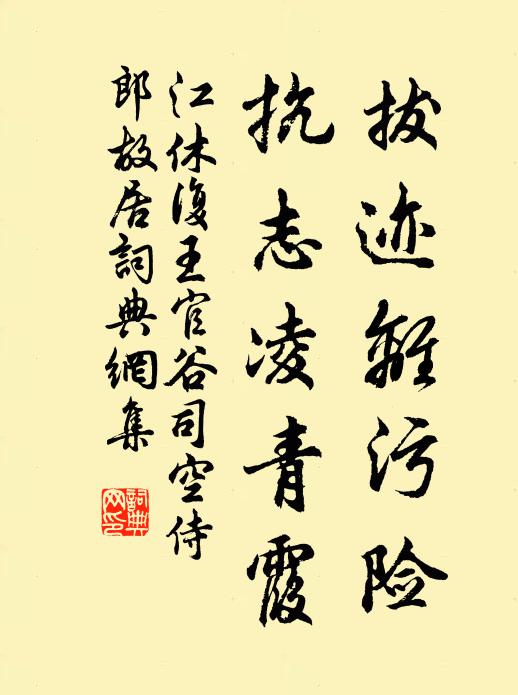 拔迹離污险
抗志凌青霞
江休復王官谷司空侍
郎故居詞典網集
詞典
网印